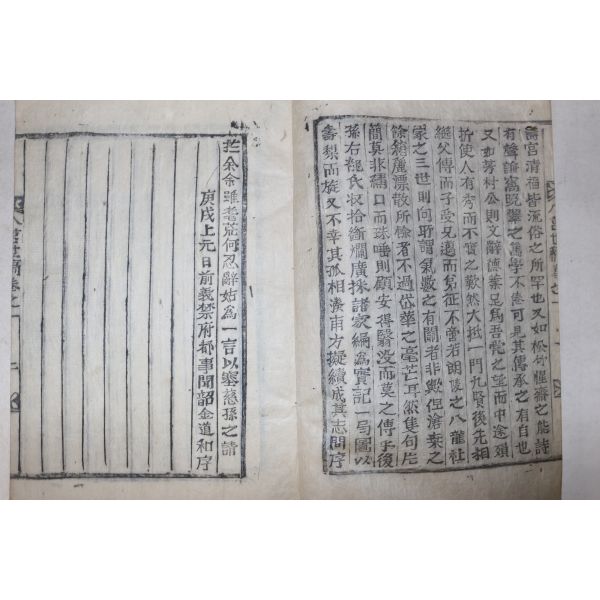 官清福皆流俗之所罕也又如松竹惺齋之能詩
有聲謙窩之篤學不怠可見其傳承之有自也
又如芳村公則文辭德業足爲吾黨之望而中途嶺
折使人有秀而不實之歎然大抵一門九賢後先相
繼父傳而子受兄邁而弟征不啻若朗陵之八龍社
家之三世則何所謂氣數之有關者非歟俚滄桑之
餘箱簏漂散所徐者不過岱華之毫芒耳然隻句片
簡莫非繡口而珠唾則顧安得翳沒而莫之傳乎後
孫右龍氏收拾斷爛廣採諸家編爲實記一局圖以
壽梨而旋又不幸其孤相濩南方擬續成其志問序
於余余雖耄荒何忍辭姑爲一言以塞慈孫之請
庚戌上元日前義禁府都事聞韶金道和序